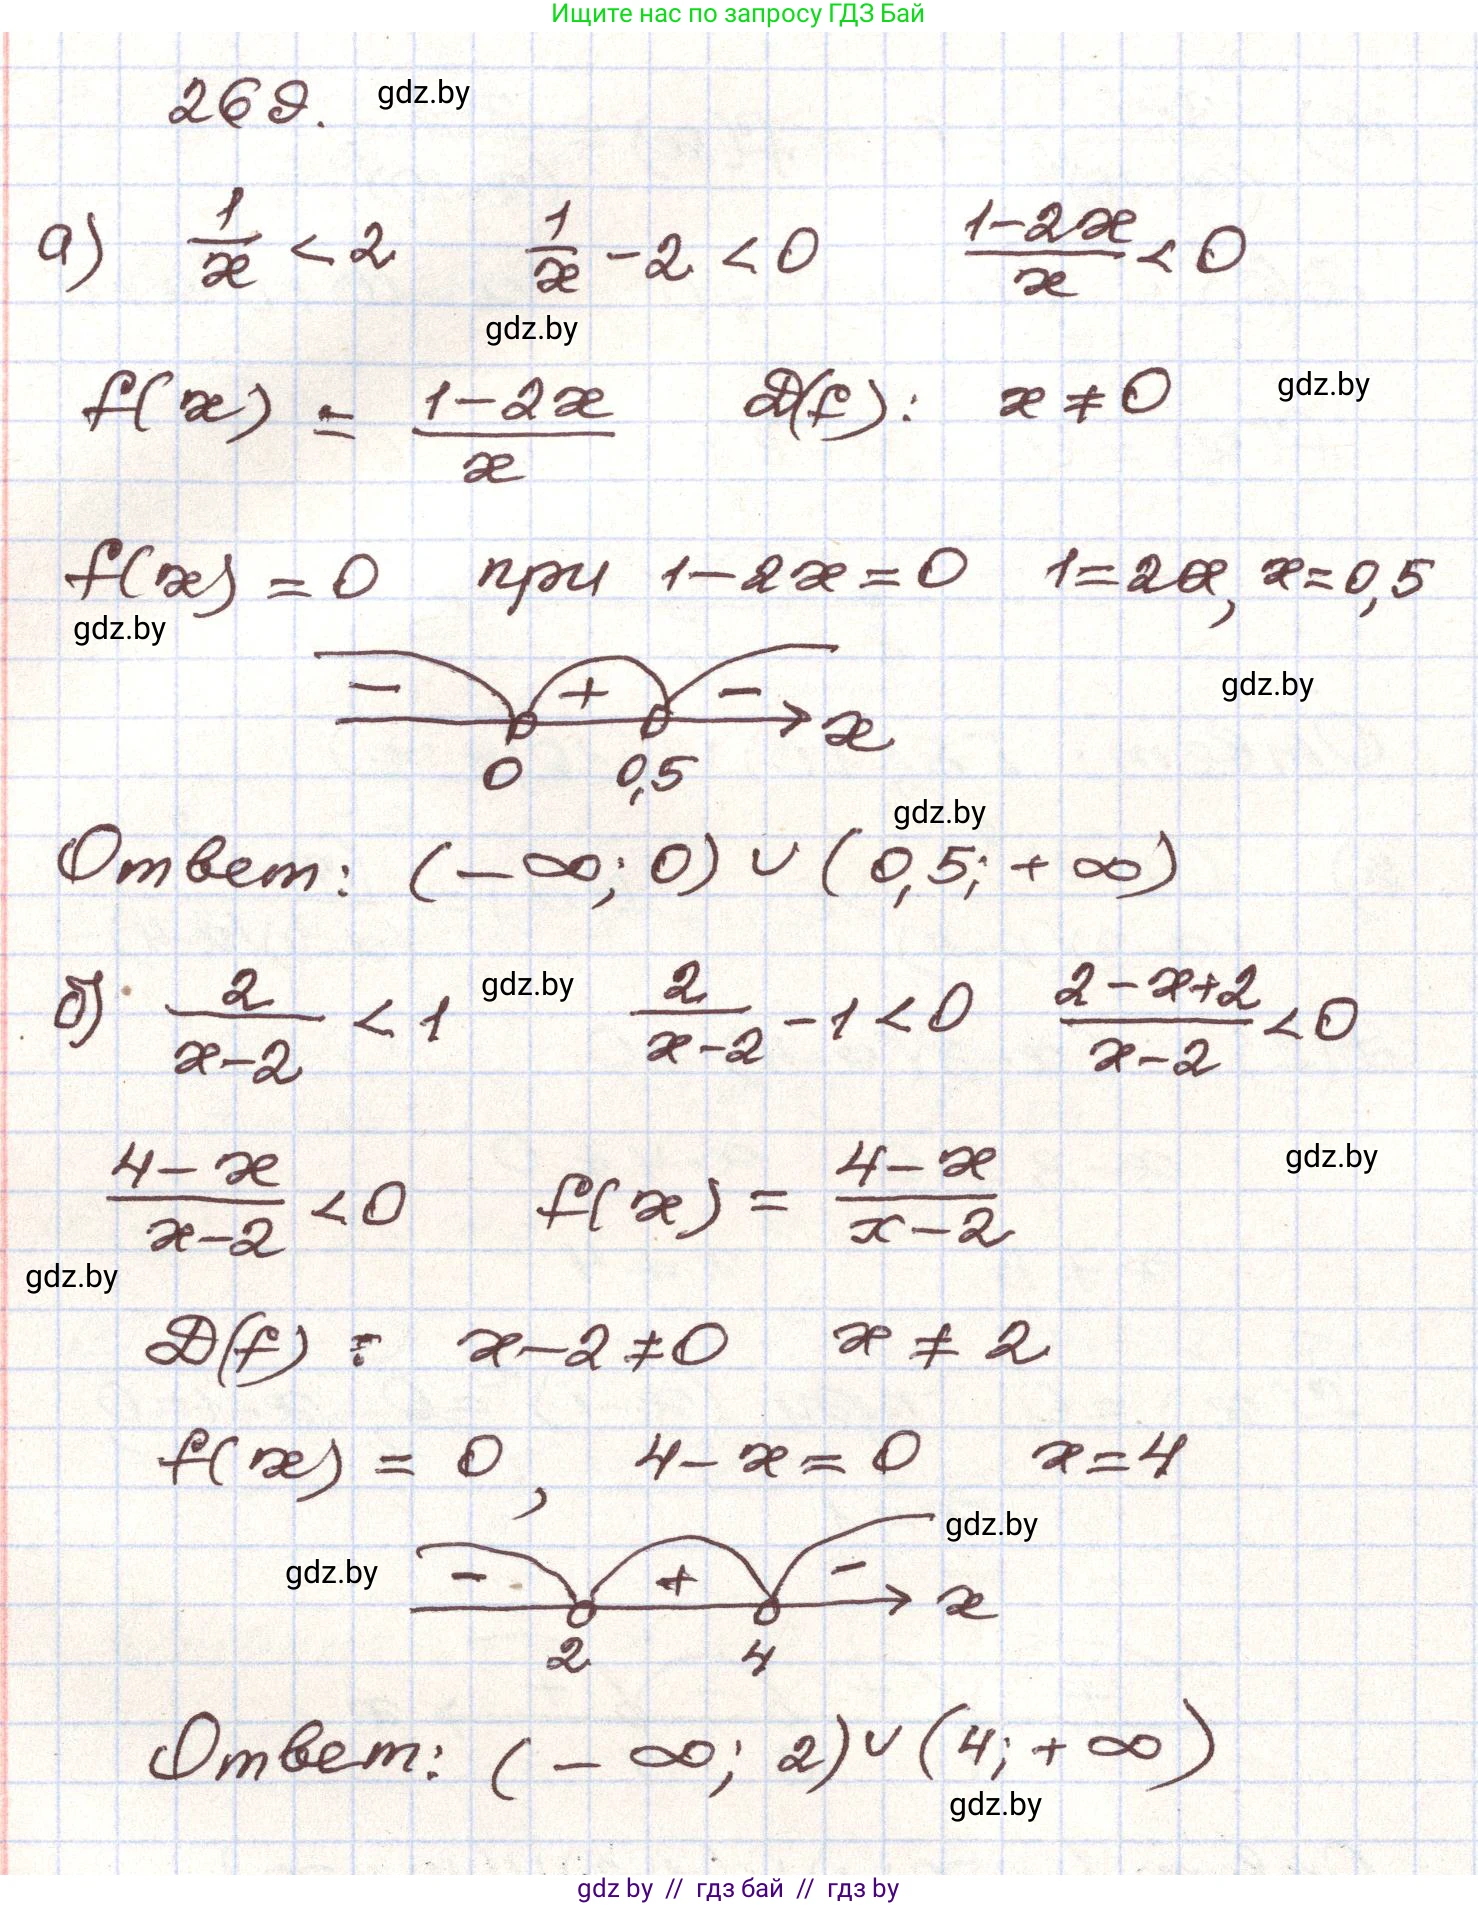 Ищите нас по запросу ГДЗ Бай
269. gdz.by
а) 1/x < 2   1/x - 2 < 0   (1-2x)/x < 0
gdz.by
f(x) = (1-2x)/x   D(f): x ≠ 0   gdz.by
f(x) = 0 при 1-2x=0   1=2x, x=0,5
gdz.by
- + - x
gdz.by
0 0,5
gdz.by
Ответ: (-∞; 0) ∪ (0,5; +∞)
б) 2/(x-2) < 1   gdz.by   2/(x-2) - 1 < 0   (2-x+2)/(x-2) < 0
(4-x)/(x-2) < 0   f(x) = (4-x)/(x-2)   gdz.by
gdz.by
D(f): x-2≠0   x ≠ 2
f(x) = 0, 4-x=0   x=4
gdz.by
gdz.by - + - x
2 4
Ответ: (-∞; 2) ∪ (4; +∞)
gdz.by
gdz by // гдз бай // гдз by